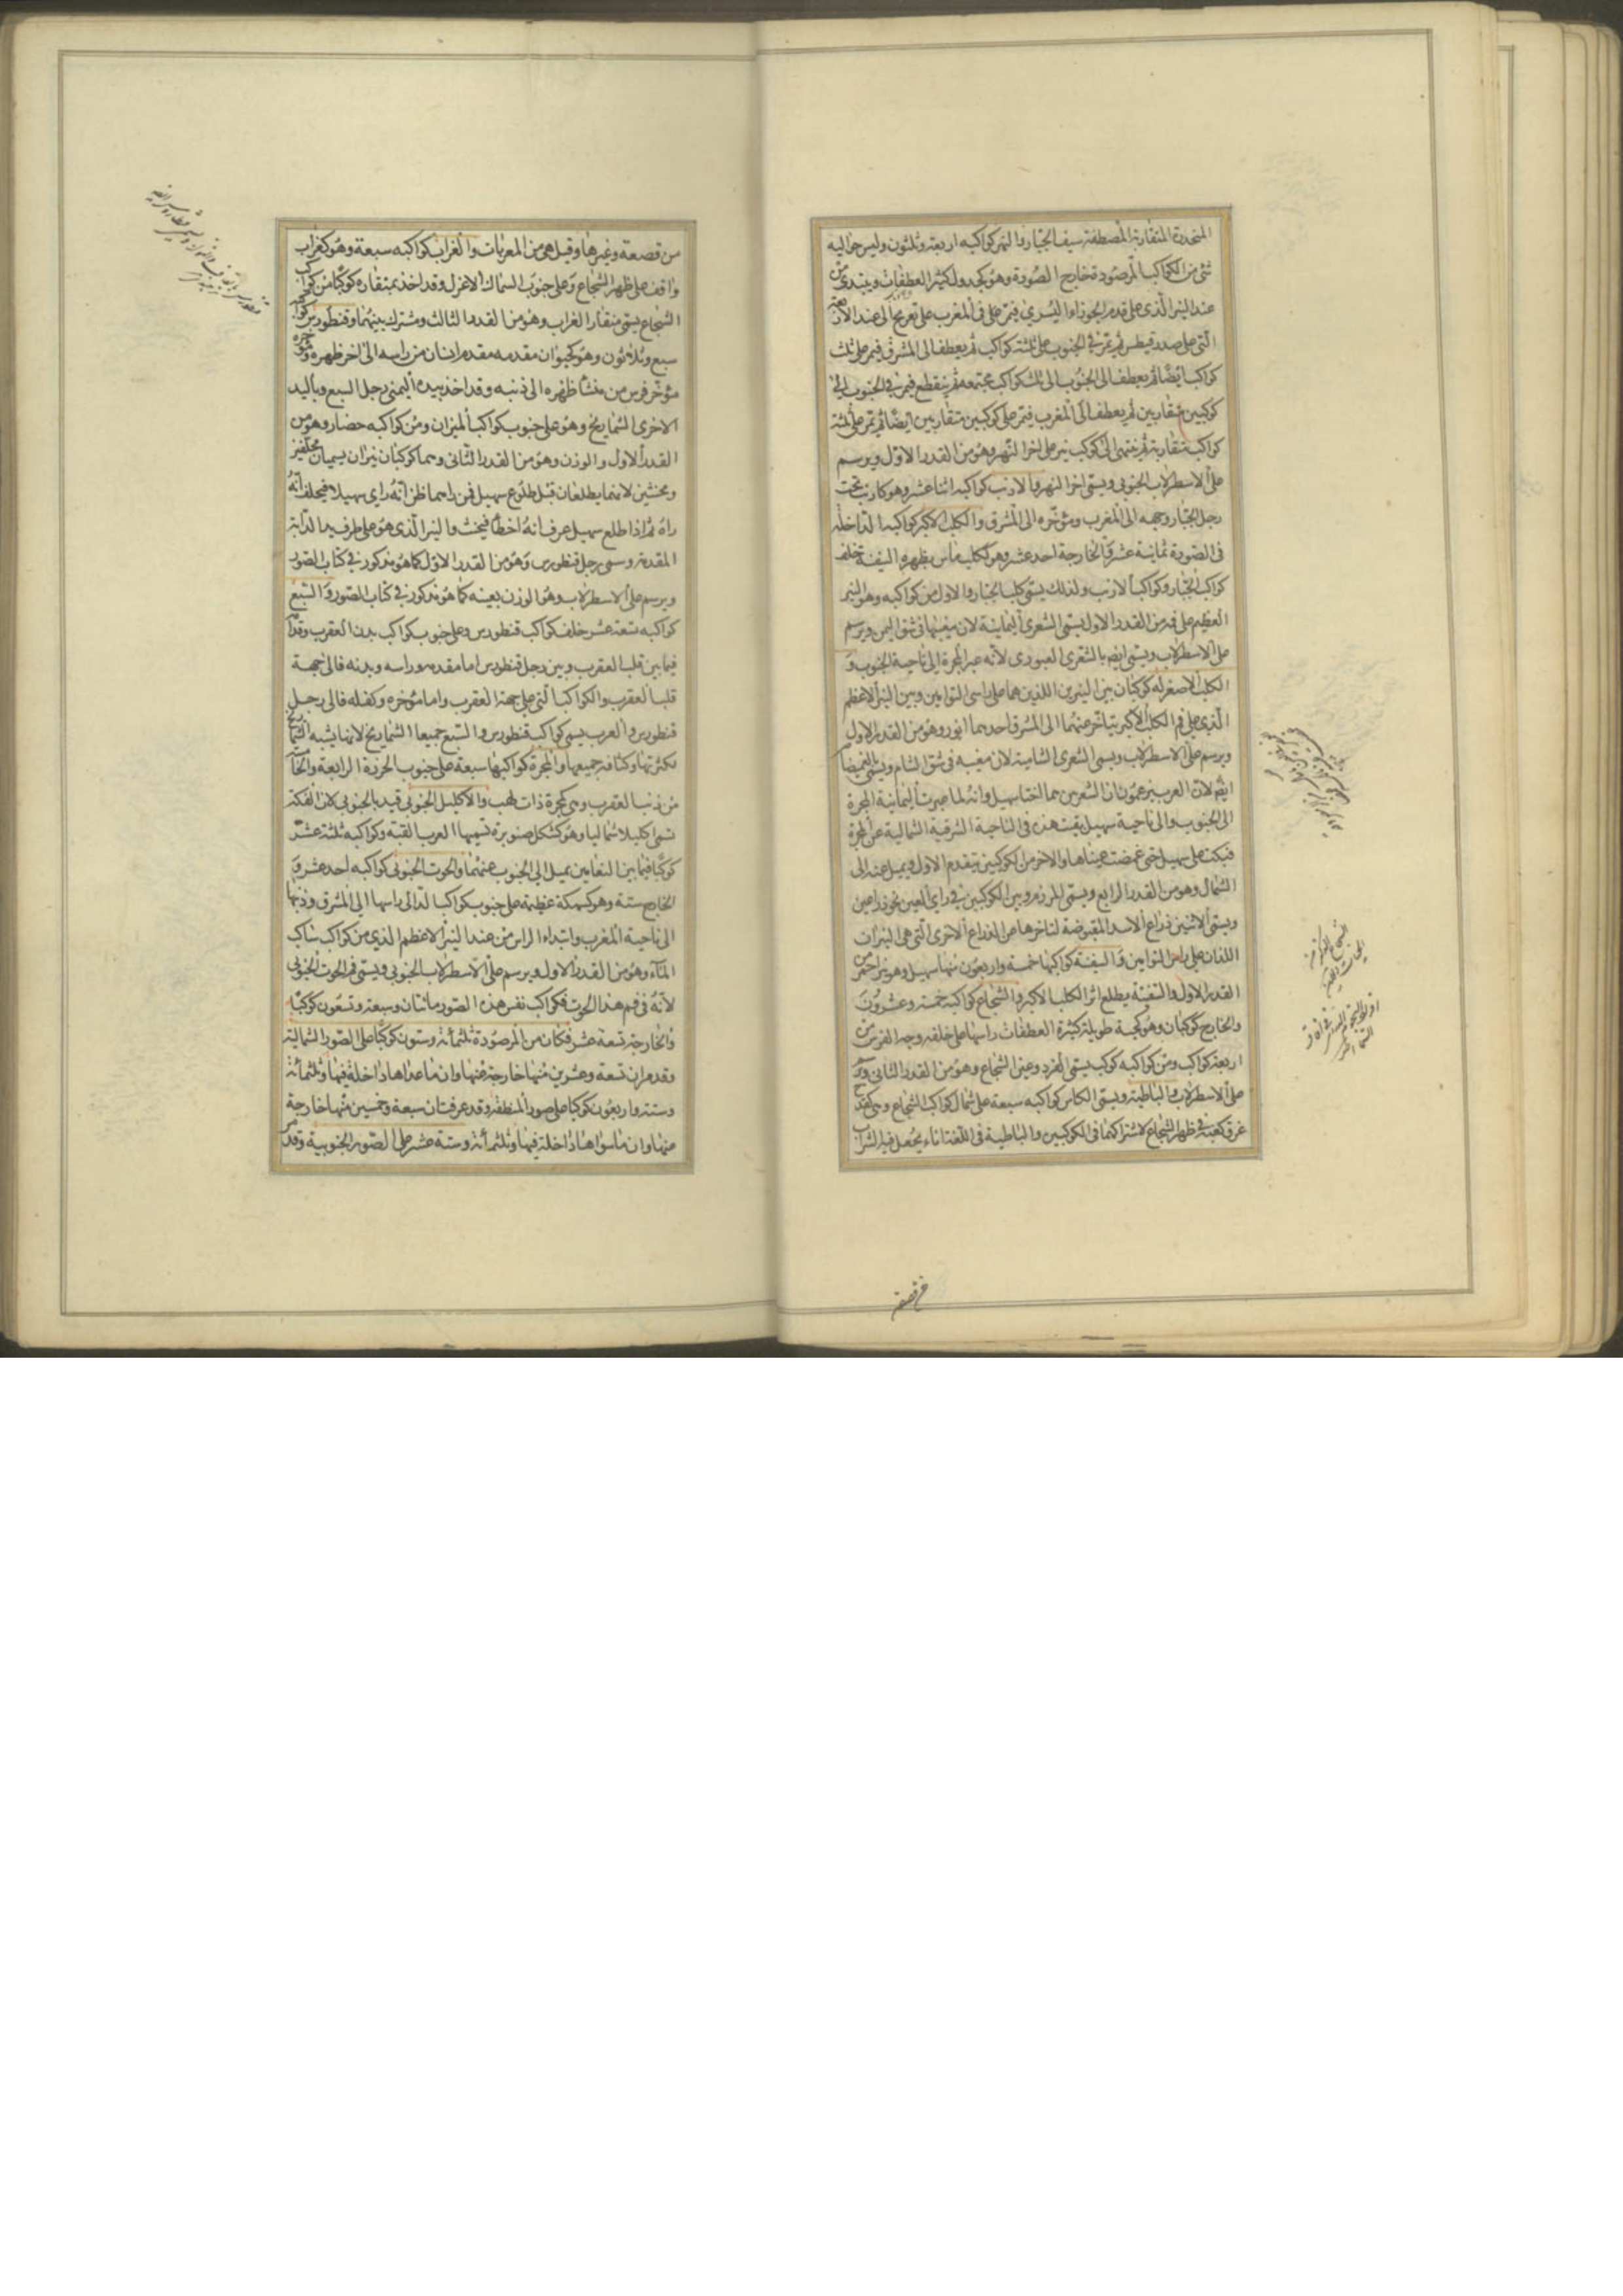 المنحدرة المتقاربة المصطفة سيف الجبار والنهر كواكبه اربعة وثلثون وليس حواليه
شئ من الكواكب المرصودة خارج الصورة وهو كجدول كثير العطفات ويبتدئ من
عند النير الذى على قدم الجوزاء اليسرى فيمر على فى المغرب على تعريج الى عند الاربعة
التى على صدر قيطس ثم يمر فى الجنوب على ثلثة كواكب ثم يعطف الى المشرق فيمر على ثلث
كواكب ايضا ثم يعطف الى الجنوب الى ثلثة كواكب مجتمعة ثم ينقطع فيمر فى الجنوب الى
كوكبين متقاربين ثم يعطف الى المغرب فيمر على كوكبين متقاربين ايضا ثم يمر على ثلثة
كواكب متقاربة ثم ينتهى الى كوكب نير على اخر النهر وهو من القدر الاول ويرسم
على الاسطرلاب الجنوبى ويسمى اخر النهر والارنب كواكبه اثنا عشر وهو كارنب تحت
رجل الجبار وجهه الى المغرب ومؤخره الى المشرق والكلب الاكبر كواكبه الداخلة
فى الصورة ثمانية عشر والخارجة احد عشر وهو ككلب ماس بظهره السفينة خلف
كواكب الجبار وكواكب الارنب ولذلك يسمى كلب الجبار والاول من كواكبه وهو النير
العظيم على فمه من القدر الاول يسمى الشعرى اليمانية لان مغيبها فى شق اليمن ويرسم
على الاسطرلاب ويسمى ايضم بالشعرى العبور لانه عبر المجرة الى ناحية الجنوب و
الكلب الاصغر له كوكبان بين النيرين اللذين هما على راسى التوامين وبين النير الاعظم
الذى على فم الكلب الاكبر يتاخر عنهما الى المشرق احدهما انور وهو من القدر الاول
ويرسم على الاسطرلاب ويسمى الشعرى الشامية لان مغيبه فى شق الشام ويسمى بالغميضا
ايضم لان العرب يزعمون ان الشعريين هما اختا سهيل وانه لما عبرت اليمانية المجرة
الى الجنوب والى ناحية سهيل بقيت هذه فى الناحية الشرقية الشمالية عن المجرة
فبكت على سهيل حتى غمضت عيناها والاخر من الكوكبين يتقدم الاول ويميل عنه الى
الشمال وهو من القدر الرابع ويسمى المرزم وبين الكوكبين فى راى العين نحو ذراعين
ويسمى الاثنين ذراع الاسد المقبوضة لتاخرها عن الذراع الاخرى التى هى النيران
اللذان على راس التوامين والسفينة كواكبها خمسة واربعون منها سهيل وهو نير احمر من
القدر الاول والسفينة يطلع اثر الكلب الاكبر والشجاع كواكبه خمسة وعشرون
والخارج كوكبان وهو كحية طويلة كثيرة العطفات راسها على خلقه وجه الفرس من
اربعة كواكب ومن كواكبه كوكب يسمى الفرد وعنق الشجاع وهو من القدر الثانى ويرسم
على الاسطرلاب والباطية ويسمى الكاس كواكبه سبعة على شمال كواكب الشجاع وهى كقدح
غرق كعبه فى ظهر الشجاع لاشتراكهما فى الكوكبين والباطية فى اللغة اناء يجعل فيه الشراب
من قصعة
من قصعة وغيرها وقيل هى من المعربات والغراب كواكبه سبعة وهو كغراب
واقف على ظهر الشجاع وعلى جنوب السماك الاعزل وقد اخذ بمنقاره كوكبا من كواكب
الشجاع يسمى منقار الغراب وهو من القدر الثالث ومشترك بينهما وقنطورس كواكبه
سبع وثلاثون وهو كحيوان مقدمه مقدم انسان من راسه الى اخر ظهره ومؤخره
مؤخر فرس من منشأ ظهره الى ذنبه وقد اخذ بيده اليمنى رجل السبع وباليد
الاخرى الشماريخ وهو على جنوب كواكب الميزان ومن كواكبه حضار وهو من
القدر الاول والوزن وهو من القدر الثانى وهما كوكبان نيران يسميان محلفين
ومحنثين لانهما يطلعان قبل طلوع سهيل فمن راهما ظن انه راى سهيلا فيحلف انه
راه ثم اذا طلع سهيل عرف انه اخطأ فيحنث والنير الذى هو على طرف يد الدابة
المقدمة وسمى رجل قنطورس وهو من القدر الاول كما هو مذكور فى كتاب الصور
ويرسم على الاسطرلاب وهو الوزن بعينه كما هو مذكور فى كتاب الصور والسبع
كواكبه تسعة عشر خلف كواكب قنطورس وعلى جنوب كواكب بدن العقرب وقدام
فيما بين قلب العقرب وبين رجل قنطورس اما مقدمه وراسه وبدنه فالى جهة
قلب العقرب والكواكب التى على جبهة العقرب واما مؤخره وكفله فالى رجل
قنطورس والعرب يسمى كواكب قنطورس والسبع جميعا الشماريخ لانها يشبه الشماريخ
لكثرتها وكثافة جميعها والمجمرة كواكبها سبعة على جنوب الخرزة الرابعة والخامسة
من ذنب العقرب وهى كمجمرة ذات لهب والاكليل الجنوبى قيد بالجنوبى لان الفكة
تسمى اكليلا شماليا وهو كشكل صنوبرة تسميها العرب القبة وكواكبه ثلثة عشر
كوكبا فيما بين النعامين يميل الى الجنوب عنهما والحوت الجنوبى كواكبه احد عشر و
الخارج ستة وهو كسمكة عظيمة على جنوب كواكب الدالى راسها الى المشرق وذنبها
الى ناحية المغرب وابتداء الراس من عند النير الاعظم الذى من كواكب ساكب
الماء وهو من القدر الاول ويرسم على الاسطرلاب الجنوبى ويسمى فم الحوت الجنوبى
لانه فى فم هذا الحوت فكواكب نفس هذه الصور مائتان وسبعة وتسعون كوكبا
والخارجة تسعة عشر فكان من المرصودة ثلثمائة وستون كوكبا على الصور الشمالية
وقد مر ان تسعة وعشرين منها خارجة عنها وان ما عداها داخلة فيها وثلثمائة
وستة واربعون كوكبا على صور المنطقة وقد عرفت ان سبعة وخمسين منها خارجة
عنها وان ما سواها داخلة فيها وثلثمائة وستة عشر على الصور الجنوبية وقد مر